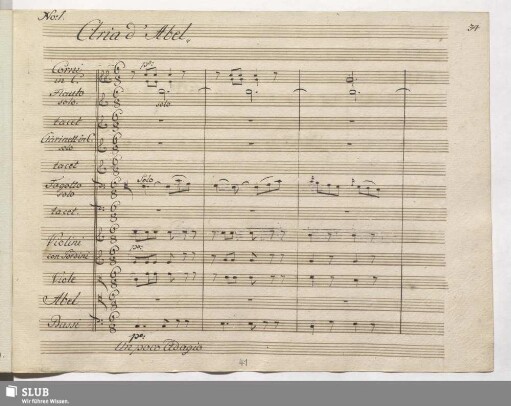 No: 1.
34
Aria d'Abel.
Corni
in C.
po:
Flauto
solo
solo
tacet
Clarinett in C.
solo
tacet
Fagotto
solo
Solo
tacet.
Violini
con Sordini
po:
Viole
Abel
Bassi
po:
Un poco Adagio
41
SLUB
Wir führen Wissen.